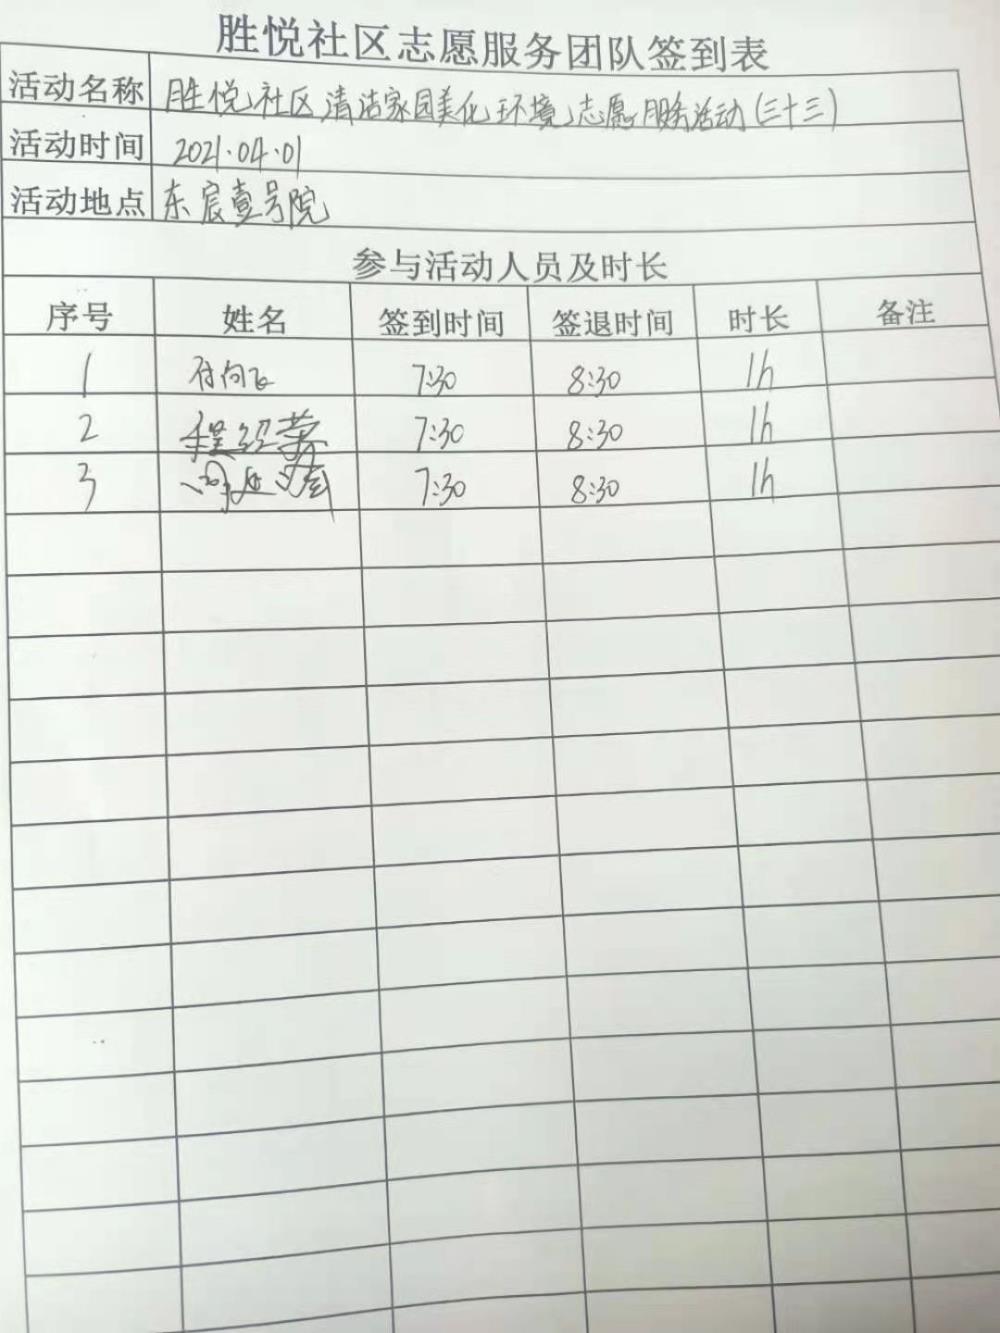 胜悦社区志愿服务团队签到表
活动名称 胜悦社区清洁家园美化环境志愿服务活动(三十三)
活动时间 2021.04.01
活动地点 东宸壹号院
参与活动人员及时长
序号 姓名 签到时间 签退时间 时长 备注
1 付向飞 7:30 8:30 1h
2 程绍荣 7:30 8:30 1h
3 7:30 8:30 1h